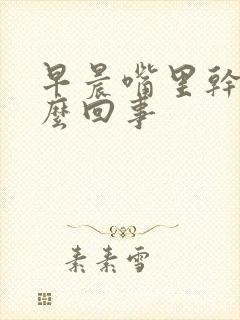 早晨嘴里幹
麼回事
素素雪